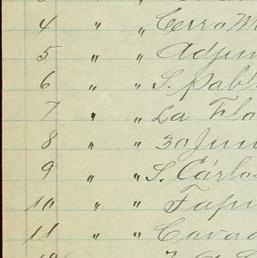 4 " " Cerro M
5 " " Adjun
6 " " S. Pabl
7 " " La Flo
8 " " 30 Jun
9 " " S. Cárlo
10 " " Tapi
11 " " Cavad